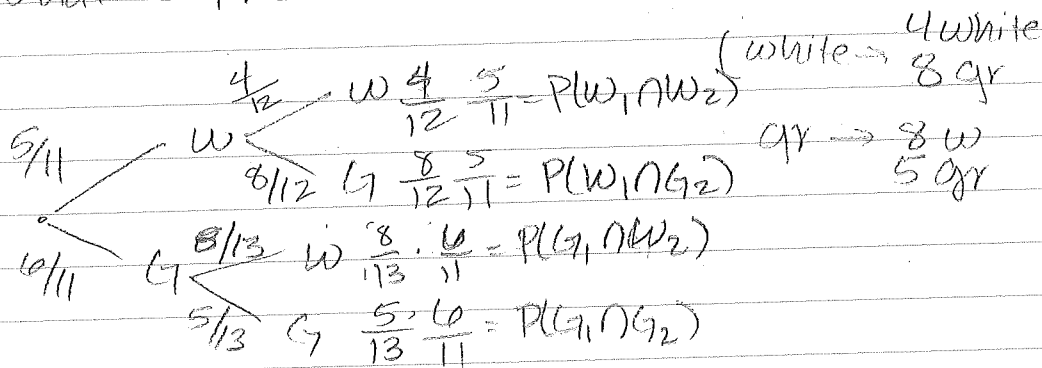 (white → 4 white
8 gr
gr → 8 w
5 gr
5/11
4/12 W 4/12 5/11 = P(W₁∩W₂)
W
8/12 G 8/12 5/11 = P(W₁∩G₂)
6/11
G
8/13 W 8/13 · 6/11 = P(G₁∩W₂)
5/13 G 5/13 · 6/11 = P(G₁∩G₂)